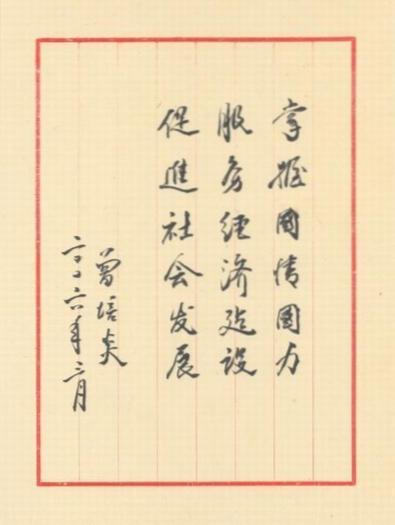 掌握国情国力
服务经济建设
促進社会发展
曾培炎
二〇〇六年二月